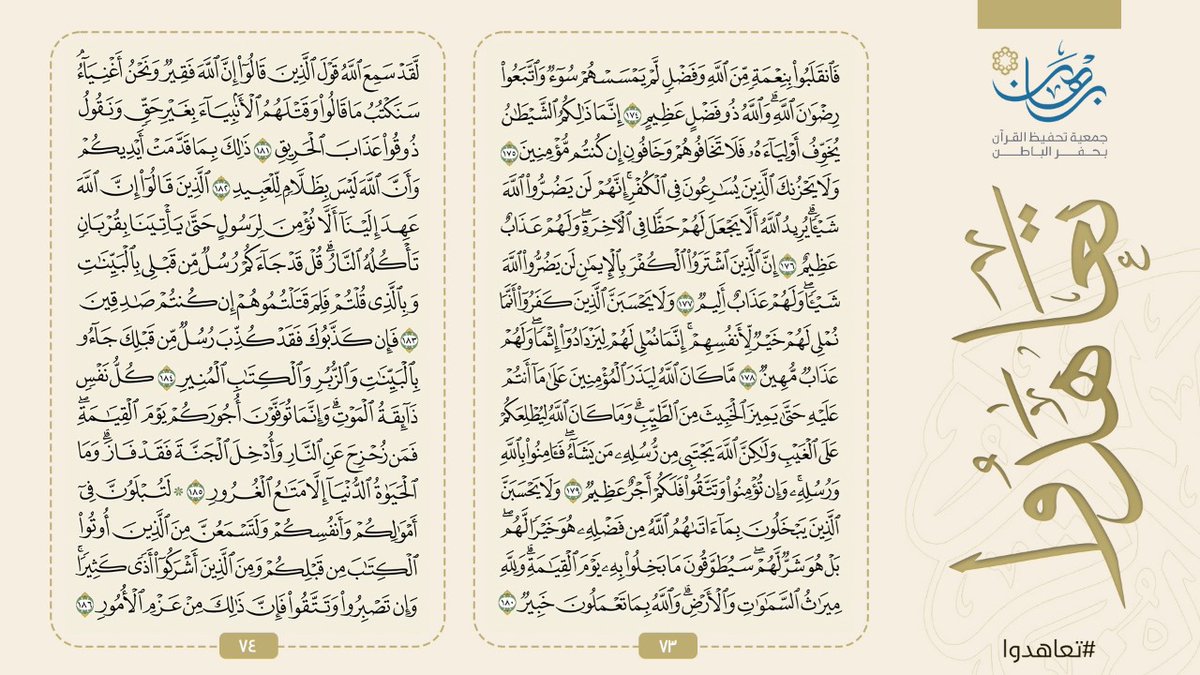 برهان
جمعية تحفيظ القرآن
بحفر الباطن
تعاهدوا
#تعاهدوا
فَٱنقَلَبُواْ بِنِعۡمَةٖ مِّنَ ٱللَّهِ وَفَضۡلٖ لَّمۡ يَمۡسَسۡهُمۡ سُوٓءٞ وَٱتَّبَعُواْ
رِضۡوَٰنَ ٱللَّهِۗ وَٱللَّهُ ذُو فَضۡلٍ عَظِيمٍ ١٧٤ إِنَّمَا ذَٰلِكُمُ ٱلشَّيۡطَٰنُ
يُخَوِّفُ أَوۡلِيَآءَهُۥ فَلَا تَخَافُوهُمۡ وَخَافُونِ إِن كُنتُم مُّؤۡمِنِينَ ١٧٥
وَلَا يَحۡزُنكَ ٱلَّذِينَ يُسَٰرِعُونَ فِي ٱلۡكُفۡرِۚ إِنَّهُمۡ لَن يَضُرُّواْ ٱللَّهَ
شَيۡـٔٗاۗ يُرِيدُ ٱللَّهُ أَلَّا يَجۡعَلَ لَهُمۡ حَظّٗا فِي ٱلۡأٓخِرَةِۖ وَلَهُمۡ عَذَابٌ
عَظِيمٌ ١٧٦ إِنَّ ٱلَّذِينَ ٱشۡتَرَوُاْ ٱلۡكُفۡرَ بِٱلۡإِيمَٰنِ لَن يَضُرُّواْ ٱللَّهَ
شَيۡـٔٗاۖ وَلَهُمۡ عَذَابٌ أَلِيمٞ ١٧٧ وَلَا يَحۡسَبَنَّ ٱلَّذِينَ كَفَرُوٓاْ أَنَّمَا
نُمۡلِي لَهُمۡ خَيۡرٞ لِّأَنفُسِهِمۡۚ إِنَّمَا نُمۡلِي لَهُمۡ لِيَزۡدَادُوٓاْ إِثۡمٗاۖ وَلَهُمۡ
عَذَابٞ مُّهِينٞ ١٧٨ مَّا كَانَ ٱللَّهُ لِيَذَرَ ٱلۡمُؤۡمِنِينَ عَلَىٰ مَآ أَنتُمۡ
عَلَيۡهِ حَتَّىٰ يَمِيزَ ٱلۡخَبِيثَ مِنَ ٱلطَّيِّبِۗ وَمَا كَانَ ٱللَّهُ لِيُطۡلِعَكُمۡ
عَلَى ٱلۡغَيۡبِ وَلَٰكِنَّ ٱللَّهَ يَجۡتَبِي مِن رُّسُلِهِۦ مَن يَشَآءُۖ فَـَٔامِنُواْ بِٱللَّهِ
وَرُسُلِهِۦۚ وَإِن تُؤۡمِنُواْ وَتَتَّقُواْ فَلَكُمۡ أَجۡرٌ عَظِيمٞ ١٧٩ وَلَا يَحۡسَبَنَّ
ٱلَّذِينَ يَبۡخَلُونَ بِمَآ ءَاتَىٰهُمُ ٱللَّهُ مِن فَضۡلِهِۦ هُوَ خَيۡرٗا لَّهُمۖ
بَلۡ هُوَ شَرّٞ لَّهُمۡۖ سَيُطَوَّقُونَ مَا بَخِلُواْ بِهِۦ يَوۡمَ ٱلۡقِيَٰمَةِۗ وَلِلَّهِ
مِيرَٰثُ ٱلسَّمَٰوَٰتِ وَٱلۡأَرۡضِۗ وَٱللَّهُ بِمَا تَعۡمَلُونَ خَبِيرٞ ١٨٠
٧٣
لَّقَدۡ سَمِعَ ٱللَّهُ قَوۡلَ ٱلَّذِينَ قَالُوٓاْ إِنَّ ٱللَّهَ فَقِيرٞ وَنَحۡنُ أَغۡنِيَآءُۘ
سَنَكۡتُبُ مَا قَالُواْ وَقَتۡلَهُمُ ٱلۡأَنۢبِيَآءَ بِغَيۡرِ حَقّٖ وَنَقُولُ
ذُوقُواْ عَذَابَ ٱلۡحَرِيقِ ١٨١ ذَٰلِكَ بِمَا قَدَّمَتۡ أَيۡدِيكُمۡ
وَأَنَّ ٱللَّهَ لَيۡسَ بِظَلَّامٖ لِّلۡعَبِيدِ ١٨٢ ٱلَّذِينَ قَالُوٓاْ إِنَّ ٱللَّهَ
عَهِدَ إِلَيۡنَآ أَلَّا نُؤۡمِنَ لِرَسُولٍ حَتَّىٰ يَأۡتِيَنَا بِقُرۡبَانٖ
تَأۡكُلُهُ ٱلنَّارُۗ قُلۡ قَدۡ جَآءَكُمۡ رُسُلٞ مِّن قَبۡلِي بِٱلۡبَيِّنَٰتِ
وَبِٱلَّذِي قُلۡتُمۡ فَلِمَ قَتَلۡتُمُوهُمۡ إِن كُنتُمۡ صَٰدِقِينَ
١٨٣ فَإِن كَذَّبُوكَ فَقَدۡ كُذِّبَ رُسُلٞ مِّن قَبۡلِكَ جَآءُو
بِٱلۡبَيِّنَٰتِ وَٱلزُّبُرِ وَٱلۡكِتَٰبِ ٱلۡمُنِيرِ ١٨٤ كُلُّ نَفۡسٖ
ذَآئِقَةُ ٱلۡمَوۡتِۗ وَإِنَّمَا تُوَفَّوۡنَ أُجُورَكُمۡ يَوۡمَ ٱلۡقِيَٰمَةِۖ
فَمَن زُحۡزِحَ عَنِ ٱلنَّارِ وَأُدۡخِلَ ٱلۡجَنَّةَ فَقَدۡ فَازَۗ وَمَا
ٱلۡحَيَوٰةُ ٱلدُّنۡيَآ إِلَّا مَتَٰعُ ٱلۡغُرُورِ ١٨٥ ۞ لَتُبۡلَوُنَّ فِيٓ
أَمۡوَٰلِكُمۡ وَأَنفُسِكُمۡ وَلَتَسۡمَعُنَّ مِنَ ٱلَّذِينَ أُوتُواْ
ٱلۡكِتَٰبَ مِن قَبۡلِكُمۡ وَمِنَ ٱلَّذِينَ أَشۡرَكُوٓاْ أَذٗى كَثِيرٗاۚ
وَإِن تَصۡبِرُواْ وَتَتَّقُواْ فَإِنَّ ذَٰلِكَ مِنۡ عَزۡمِ ٱلۡأُمُورِ ١٨٦
٧٤